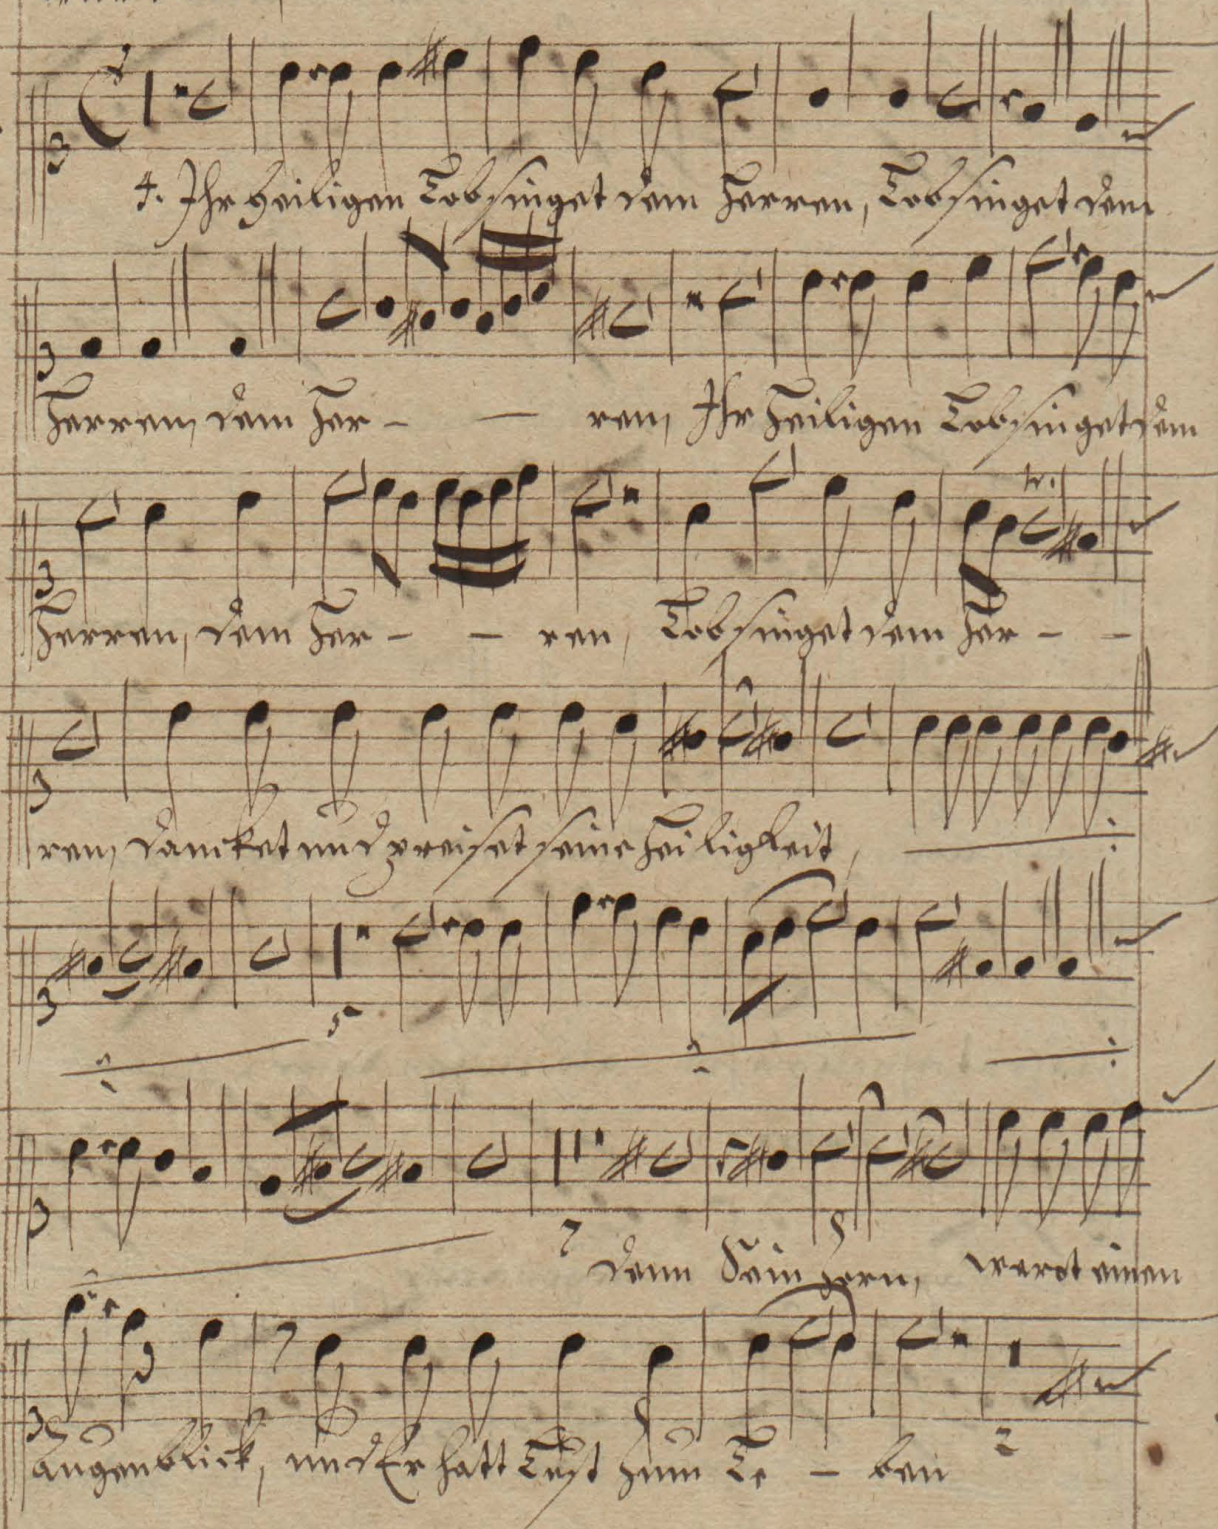 4. Ihr Heiligen Lobsinget dem Herren, Lobsinget dem
Herren, dem Her - - ren, Ihr Heiligen Lobsinget dem
Herren, dem Her - - ren, Lobsinget dem Her - -
tr.
ren, dancket und preiset seine Heiligkeit,
5
7
denn Sein Zorn, wäret einen
augenblick, und Er hatt Lust zum Le - ben
2